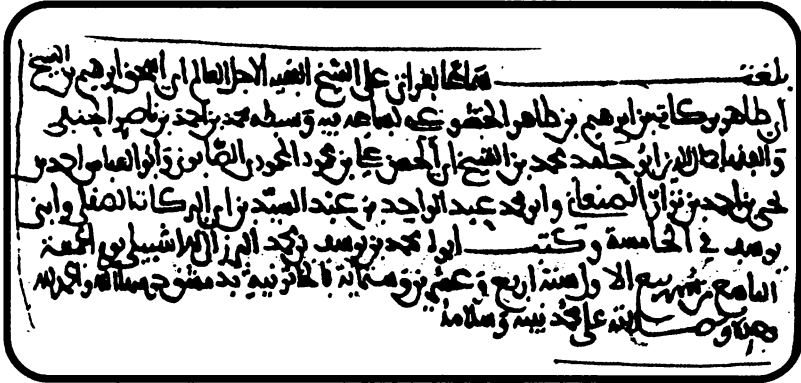 بلغت سماعا بقراتي على الشيخ الفقيه الاجل العالم ابي اسحق ابرهيم بن الشيخ
ابي طاهر بركات بن ابرهيم بن طاهر الخشوعي بسماعه فيه وسبطه محمد بن احمد بن ناصر الحنبلي
ابو حامد محمد بن الشيخ ابي الحسن علي بن محمود المحمودي بن الصابوني وابو العباس احمد بن
يحيى بن احمد بن نزار الصنعاني وابو محمد عبد الواحد بن عبد السيد بن ابي البركات الصقلي وابن
يوسف في الخامسة وكتب ابو محمد بن يوسف بن محمد البرزالي الاشبيلي يوم الجمعة
التاسع من شهر ربيع الاول سنة اربع وعشرين وستماية بدمشق والحمد لله
وحده على محمد نبيه وسلامه